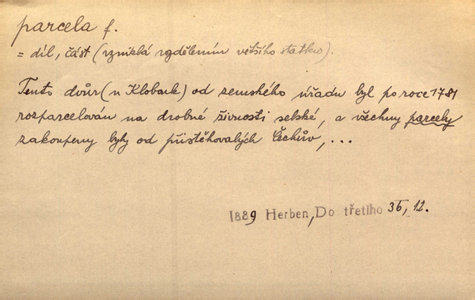 parcela f.
= díl, část (vzniklá rozdělením většího statku).
Tento dvůr (u Klobouk) od zemského úřadu byl po roce 1781
rozparcelován na drobné živnosti selské, a všechny parcely
zakoupeny byly od přistěhovalých Čechův, ...
1889 Herben, Do třetího 35, 12.